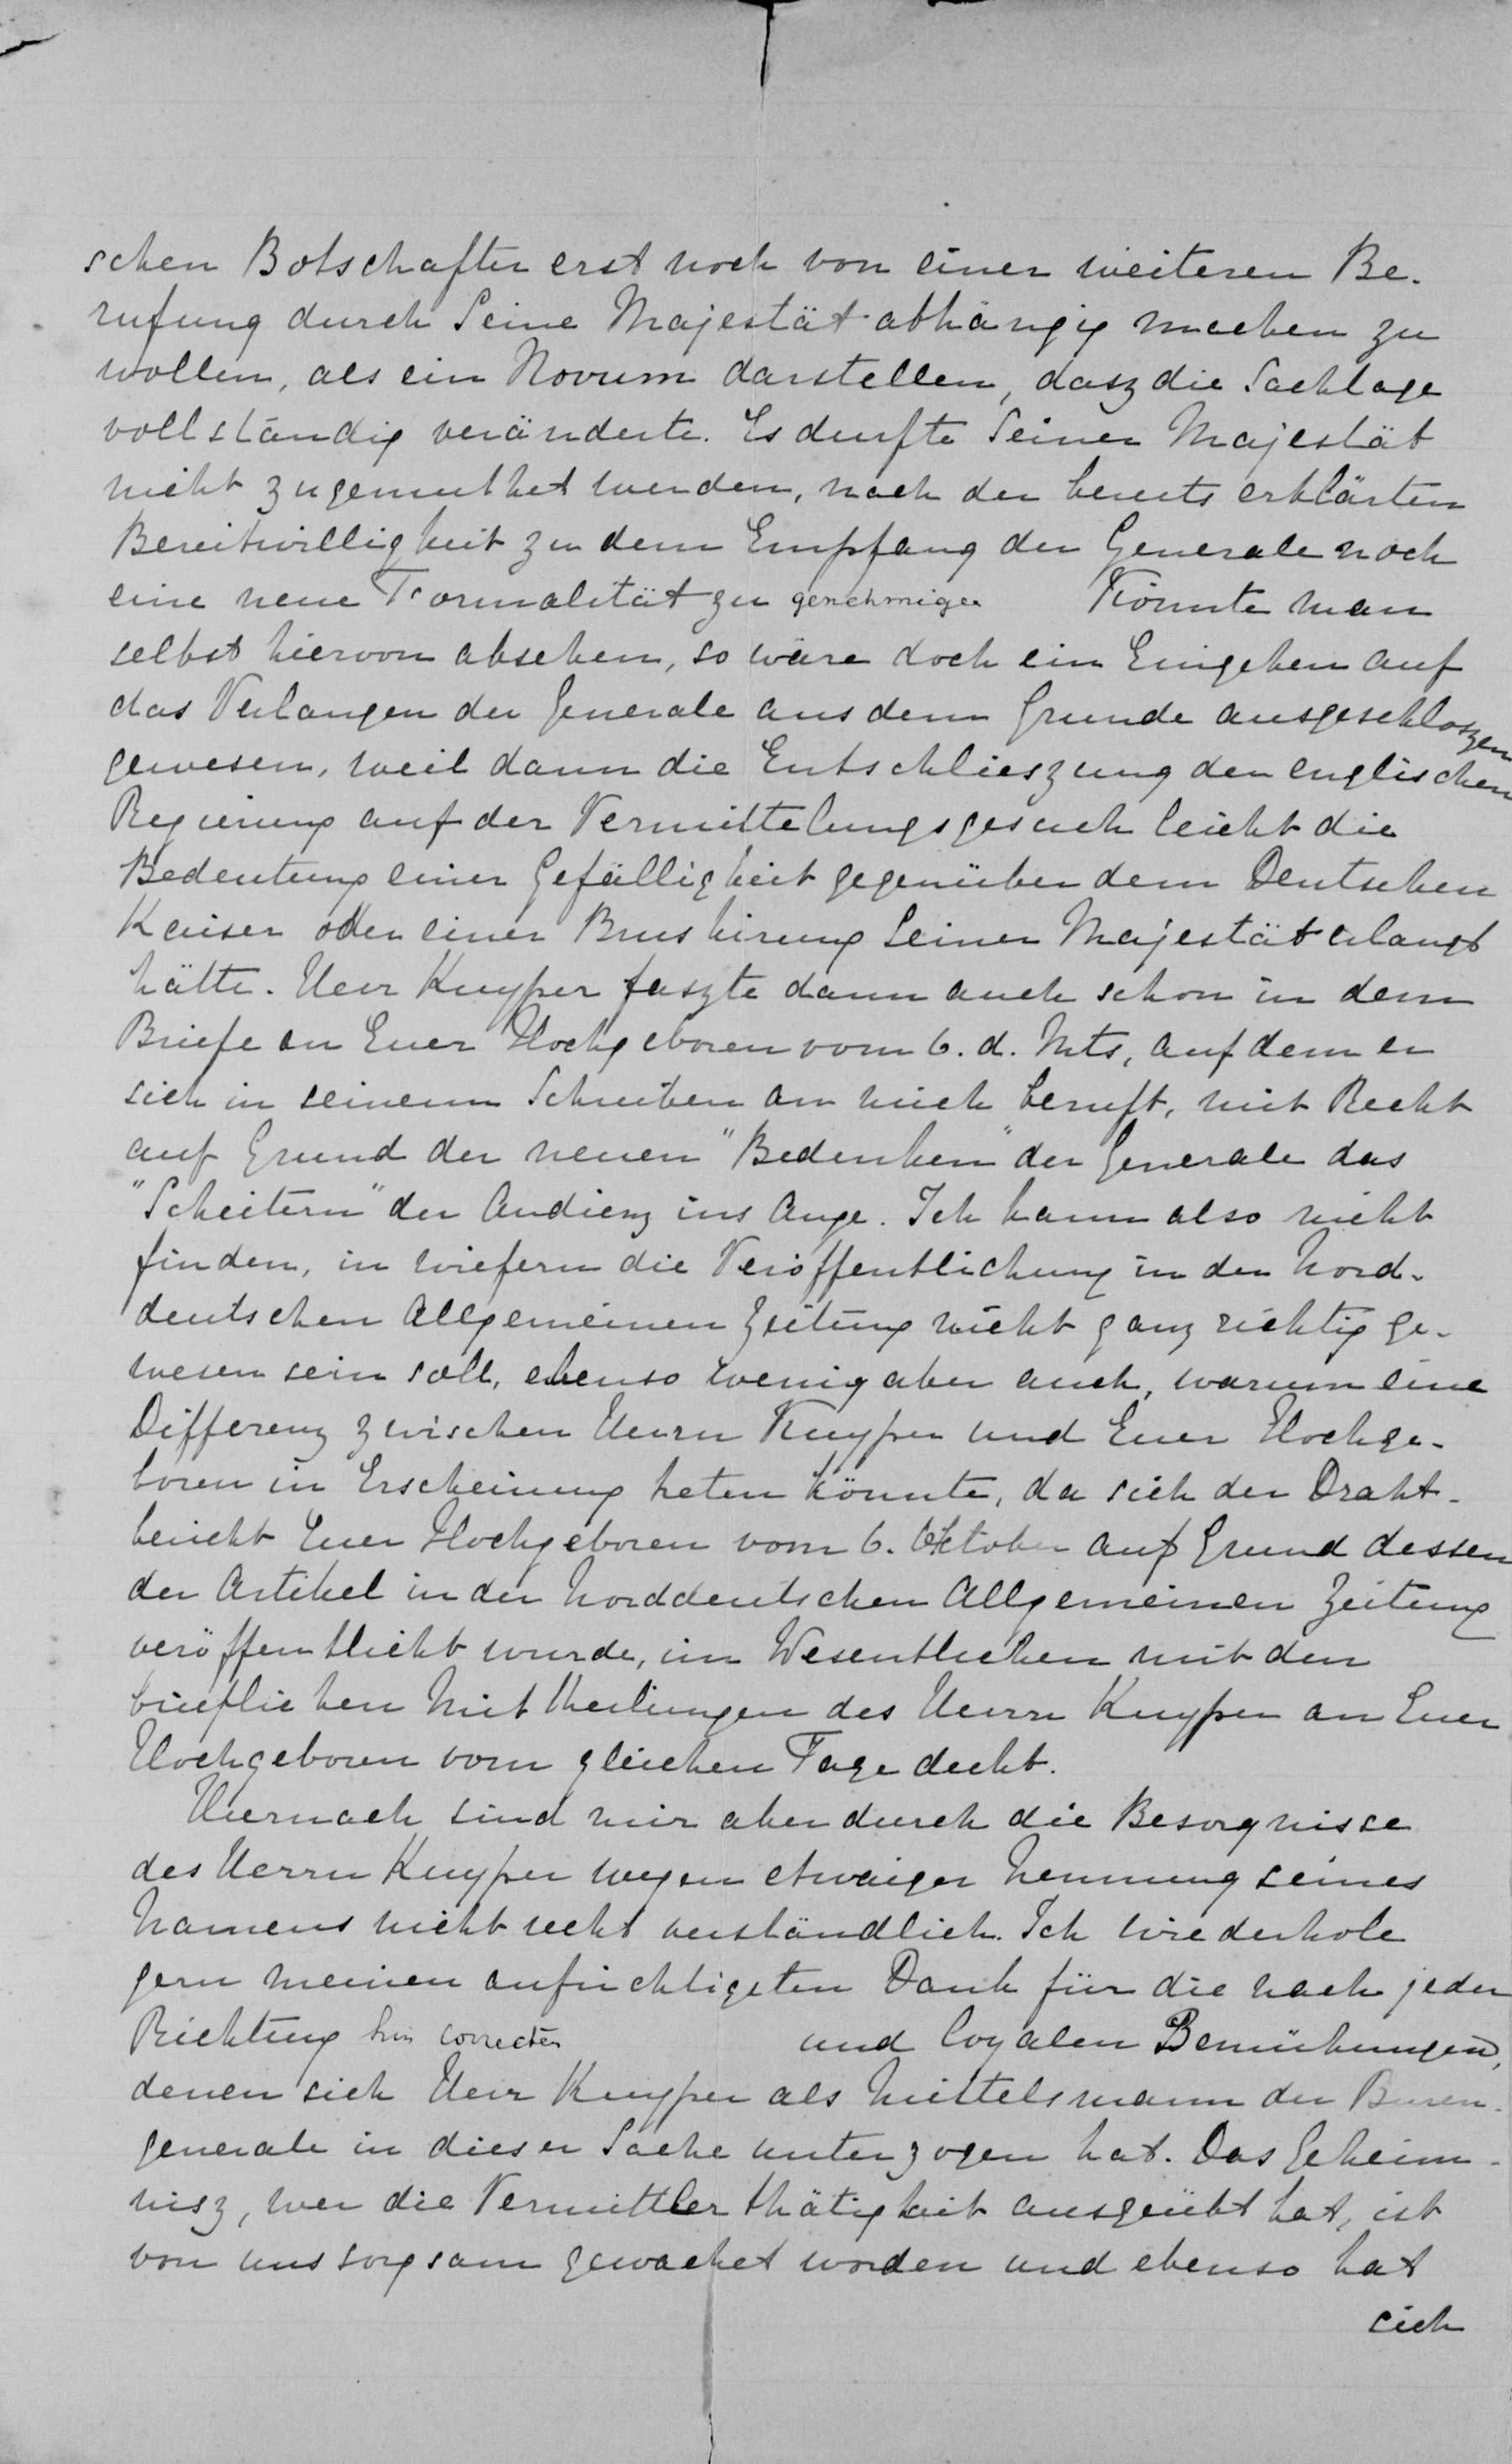 schen Botschafter erst noch von einer weiteren Be-
rufung durch Seine Majestät abhängig machen zu
wollen, als ein Novum darstellen, dasz die Sachlage
vollständig veränderte. Es durfte Seiner Majestät
nicht zugemuthet werden, nach der bereits erklärten
Bereitwilligkeit zu dem Empfang der Generale noch
eine neue Formalität zu genehmigen Könnte man
selbst hiervon absehen, so wäre doch ein Eingehen auf
das Verlangen der Generale aus dem Grunde ausgeschloszen
gewesen, weil dann die Entschlieszung der englischen
Regierung auf der Vermittelungsgesuch leicht die
Bedeutung einer Gefälligkeit gegenüber dem Deutschen
Kaiser oder einer Bruskirung Seiner Majestät erlangt
hätte. Herr Kuyper faszte dann auch schon in dem
Briefe an Euer Hochgeboren vom 6. d. Mts, auf dem er
sich in seinem Schreiben an mich beruft, mit Recht
auf Grund der neuen "Bedenken" der Generale das
"Scheitern" der Audienz ins Auge. Ich kann also nicht
finden, in wiefern die Veröffentlichung in der Nord-
deutschen Allgemeinen Zeitung nicht ganz richtig ge-
wesen sein soll, ebenso wenig aber auch, warum eine
Differenz zwischen Herrn Kuyper und Euer Hochge-
boren in Erscheinung treten könnte, da sich der Draht-
bericht Euer Hochgeboren vom 6. Oktober auf Grund dessen
der Artikel in der Norddeutschen Allgemeinen Zeitung
veröffentlicht wurde, im Wesentlichen mit den
brieflichen Mittheilungen des Herrn Kuyper an Euer
Hochgeboren vom gleichen Tage deckt.
Hiernach sind mir aber durch die Besorgnisse
des Herrn Kuyper wegen etwaiger Nennung seines
Namens nicht recht verständlich. Ich wiederhole
gern meinen aufrichtigsten Dank für die nach jeder
Richtung hin correcten und loyalen Bemühungen,
denen sich Herr Kuyper als Mittelsmann der Buren-
generale in dieser Sache unterzogen hat. Das Geheim-
nisz, wer die Vermittlerthätigkeit ausgeübt hat, ist
von uns sorgsam gewachet worden und ebenso hat
sich